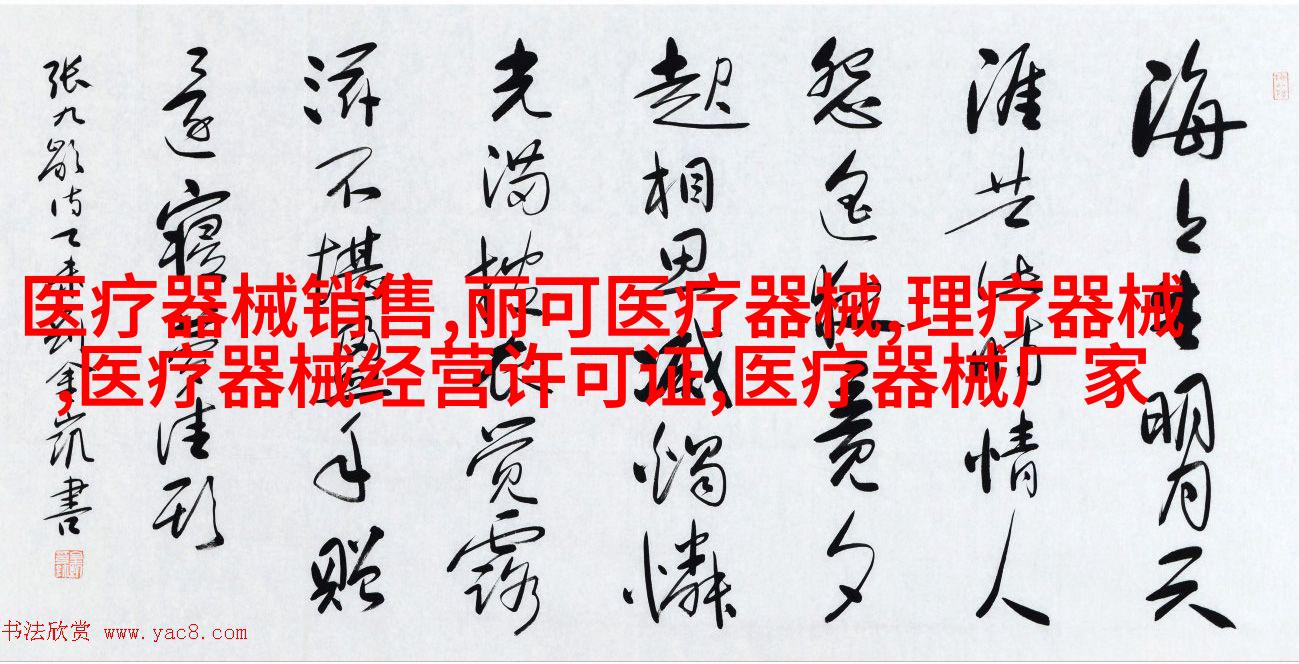 海上生明月天
涯共此時情人
怨遥夜竟夕
起相思滅燭憐
光满披衣觉露
滋不堪盈手贈
還寝夢佳期
張九齡诗乙未刘金凯書
医疗器械销售,丽可医疗器械,理疗器械
,医疗器械经营许可证,医疗器械厂家
书法欣赏 www.yac8.com